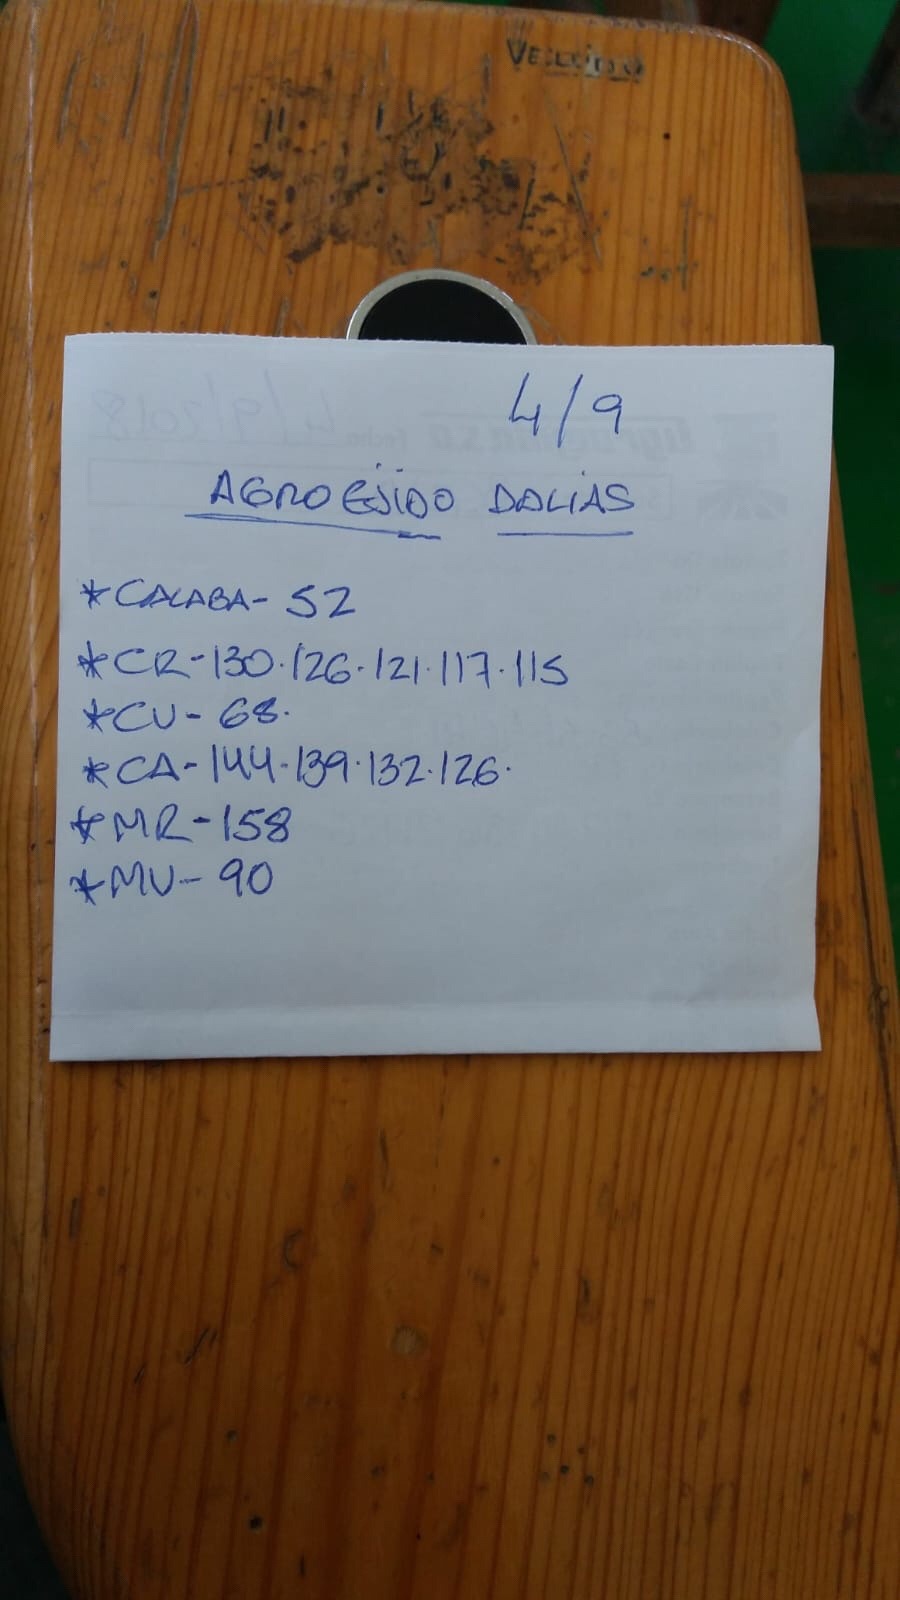 4/9
AGROEJIDO DALIAS
*CALABA- 52
*CR-130.126.121.117.115
*CU- 68.
*CA-144.139.132.126.
*MR-158
*MU- 90